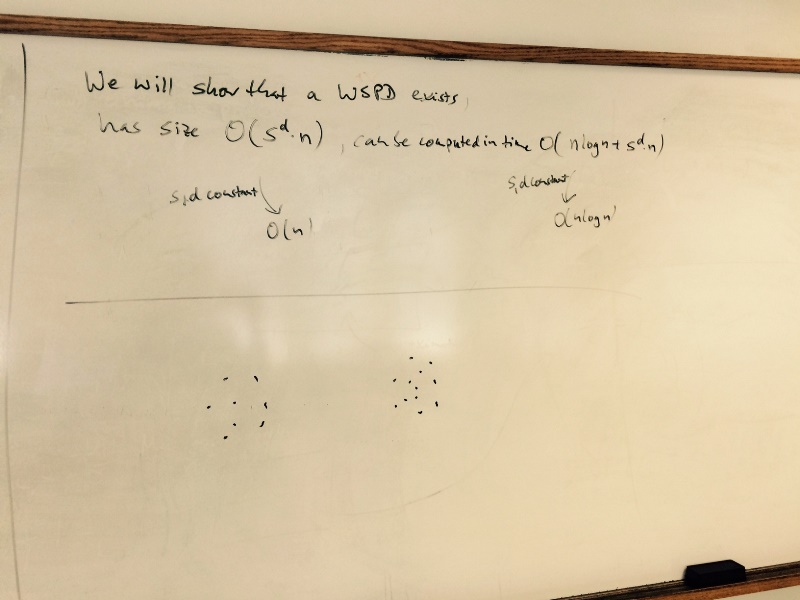 We will show that a WSPD exists,
has size O(s^d·n), can be computed in time O(n log n + s^d·n)
s,d constant
s,d constant
O(n)
O(n log n)